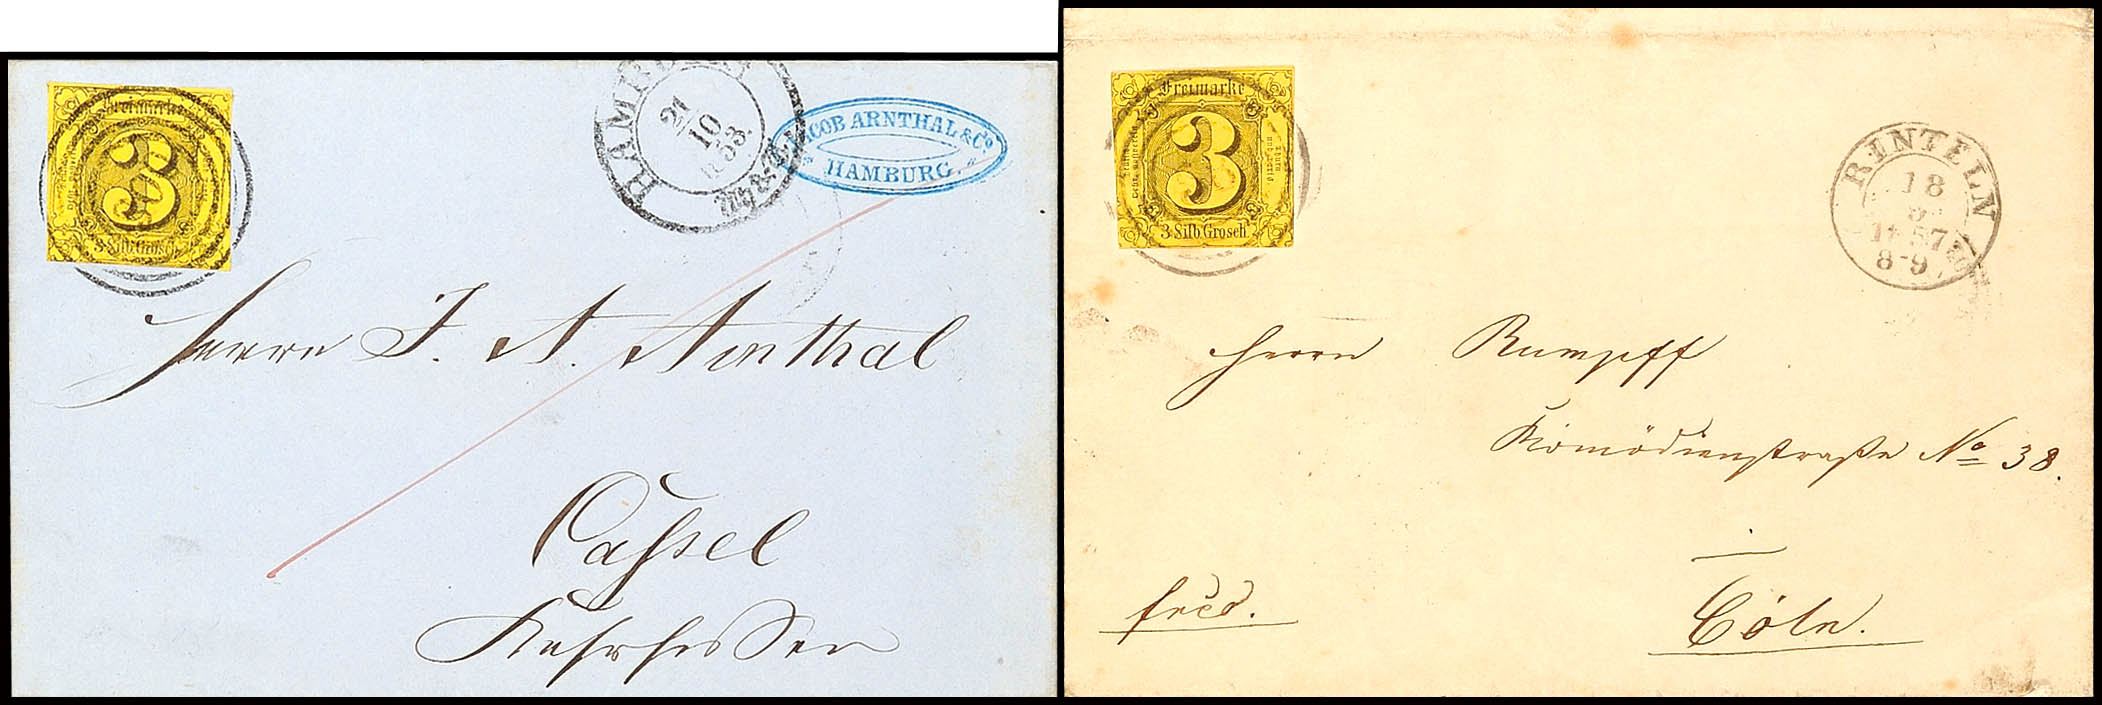 Freimarke
3
3 Silb. Grosch
HAMBURG
21
10
1853.
JACOB ARNTHAL & Co
HAMBURG.
Herrn J. A. Arnthal
Cassel
Kurhessen
Freimarke
3
3 Silb. Grosch
RINTELN
18
1857
8-9
Herrn Rumpff
Komödienstraße No 38.
frco.
Cöln.